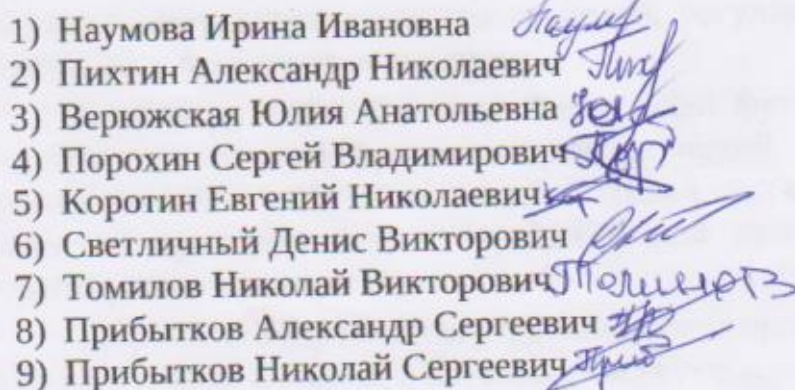 1) Наумова Ирина Ивановна
2) Пихтин Александр Николаевич
3) Верюжская Юлия Анатольевна
4) Порохин Сергей Владимирович
5) Коротин Евгений Николаевич
6) Светличный Денис Викторович
7) Томилов Николай Викторович
8) Прибытков Александр Сергеевич
9) Прибытков Николай Сергеевич